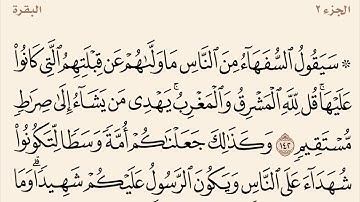 الجزء ٢ البقرة
۞ سَيَقُولُ ٱلسُّفَهَآءُ مِنَ ٱلنَّاسِ مَا وَلَّىٰهُمْ عَن قِبْلَتِهِمُ ٱلَّتِى كَانُوا۟
عَلَيْهَا ۚ قُل لِّلَّهِ ٱلْمَشْرِقُ وَٱلْمَغْرِبُ ۚ يَهْدِى مَن يَشَآءُ إِلَىٰ صِرَٰطٍ
مُّسْتَقِيمٍ ١٤٢ وَكَذَٰلِكَ جَعَلْنَٰكُمْ أُمَّةً وَسَطًا لِّتَكُونُوا۟
شُهَدَآءَ عَلَى ٱلنَّاسِ وَيَكُونَ ٱلرَّسُولُ عَلَيْكُمْ شَهِيدًا ۗ وَمَا